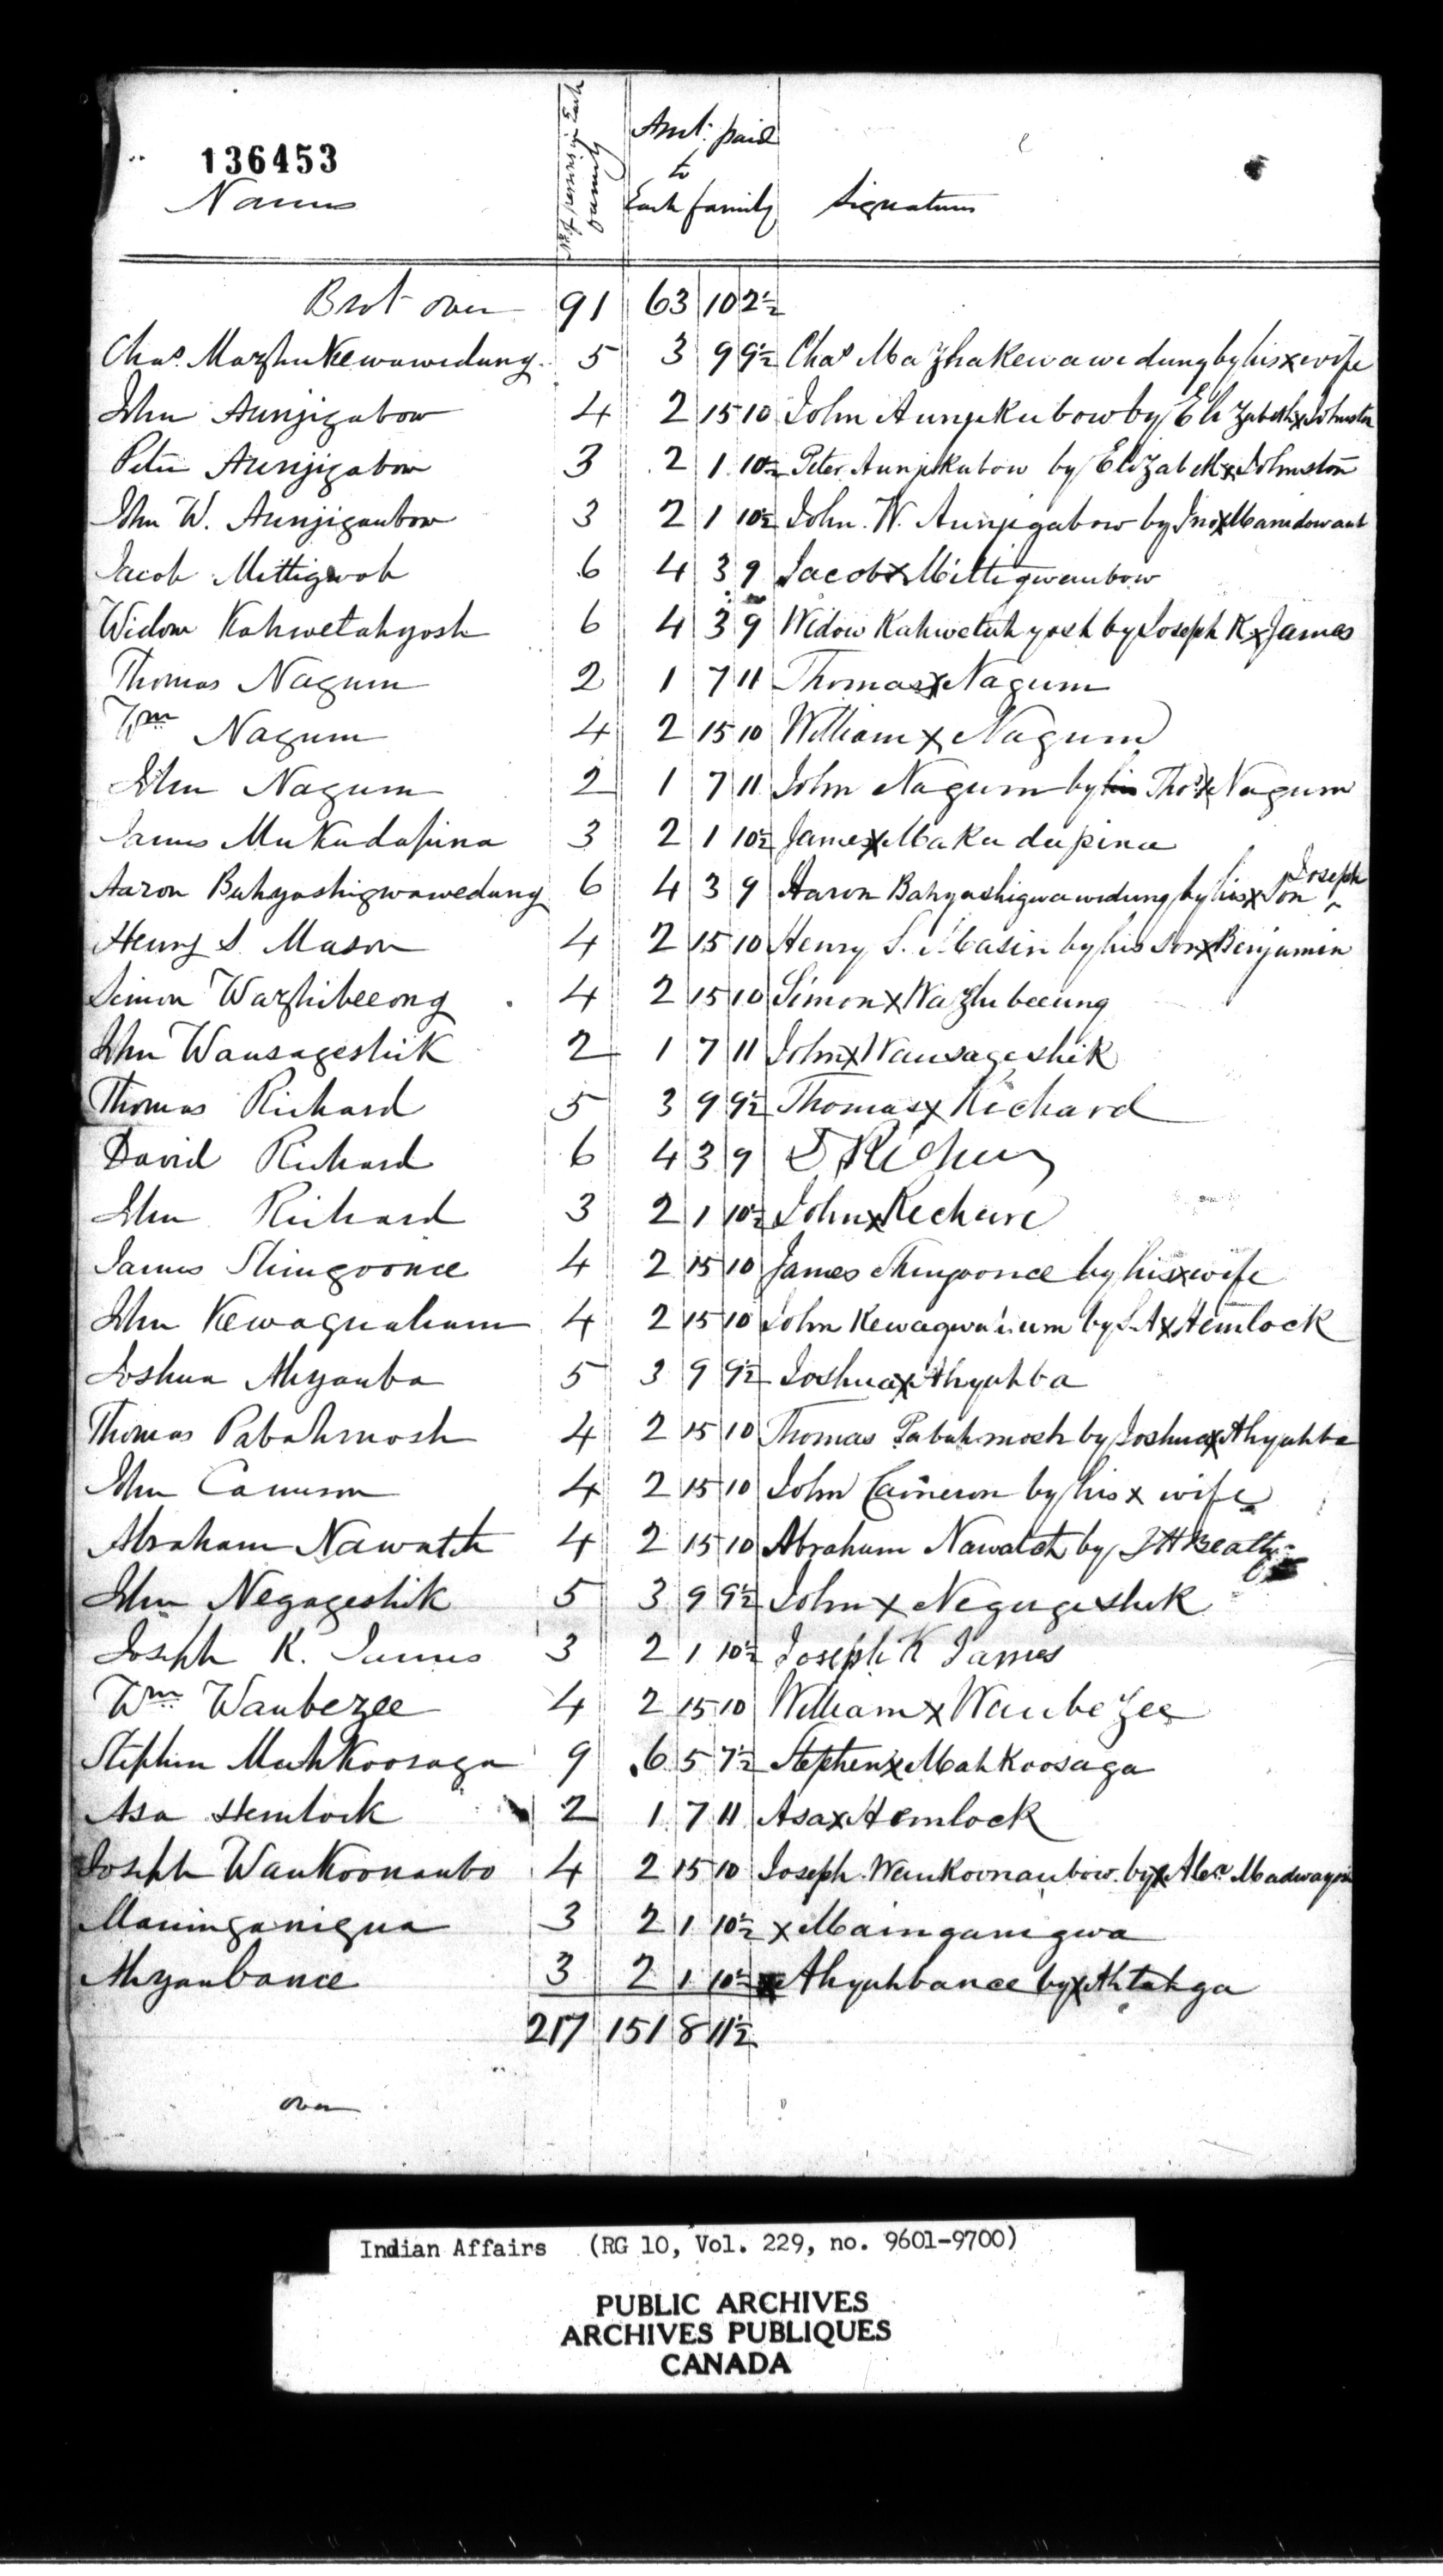 136453
Names
No of persons in Each family
Amt. paid to Each family
Signatures
Brot over 91 63 10 2½
Chas Mazhukewawedung 5 3 9 9½ Chas Mazhakewawedung by his x wife
John Aunjigabow 4 2 15 10 John Aunjekubow by Elizabeth x Johnston
Peter Aunjigabow 3 2 1 10½ Peter Aunjekubow by Elizabeth x Johnston
John W. Aunjigaubow 3 2 1 10½ John. W. Aunjegabow by Jno x Manidowaub
Jacob Mittigwob 6 4 3 9 Jacob x Mittigwaubow
Widow Kahwetahyosh 6 4 3 9 Widow Kahwetahyosh by Joseph K x James
Thomas Nagum 2 1 7 11 Thomas x Nagum
Wm Nagum 4 2 15 10 William x Nagum
John Nagum 2 1 7 11 John Nagum by his Thos x Nagum
James Mukudapina 3 2 1 10½ James x Makudapina
Aaron Bahyashigwawedung 6 4 3 9 Aaron Bahyashigwawedung by his x Son Joseph
Henry S. Mason 4 2 15 10 Henry S. Masin by his son x Benjamin
Simon Wazhibeeong 4 2 15 10 Simon x Wazhubeeung
John Wausageshik 2 1 7 11 John x Wausageshik
Thomas Richard 5 3 9 9½ Thomas x Richard
David Richard 6 4 3 9 D Richard
John Richard 3 2 1 10½ John x Richard
James Shingoonce 4 2 15 10 James Shingoonce by his x wife
John Kewaquahum 4 2 15 10 John Kewagwahum by S. A x Hemlock
Joshua Ahyauba 5 3 9 9½ Joshua x Ahyahba
Thomas Pabahmosh 4 2 15 10 Thomas Pabahmosh by Joshua x Ahyahba
John Cameron 4 2 15 10 John Cameron by his x wife
Abraham Nawatch 4 2 15 10 Abraham Nawatch by J H Beatty
John Negageshik 5 3 9 9½ John x Negugeshik
Joseph K. James 3 2 1 10½ Joseph K James
Wm Waubezee 4 2 15 10 William x Waubezee
Stephen Mahkoosaga 9 6 5 7½ Stephen x Mahkoosaga
Asa Hemlock 2 1 7 11 Asa x Hemlock
Joseph Waukoonaubo 4 2 15 10 Joseph Waukoonaubow by x Alexr
Mauinganigua 3 2 1 10½ x Mainganigwa
Ahyaubance 3 2 1 10½ Ahyahbance by x Ahtahga
217 151 8 11½
over
Indian Affairs (RG 10, Vol. 229, no. 9601-9700)
PUBLIC ARCHIVES
ARCHIVES PUBLIQUES
CANADA